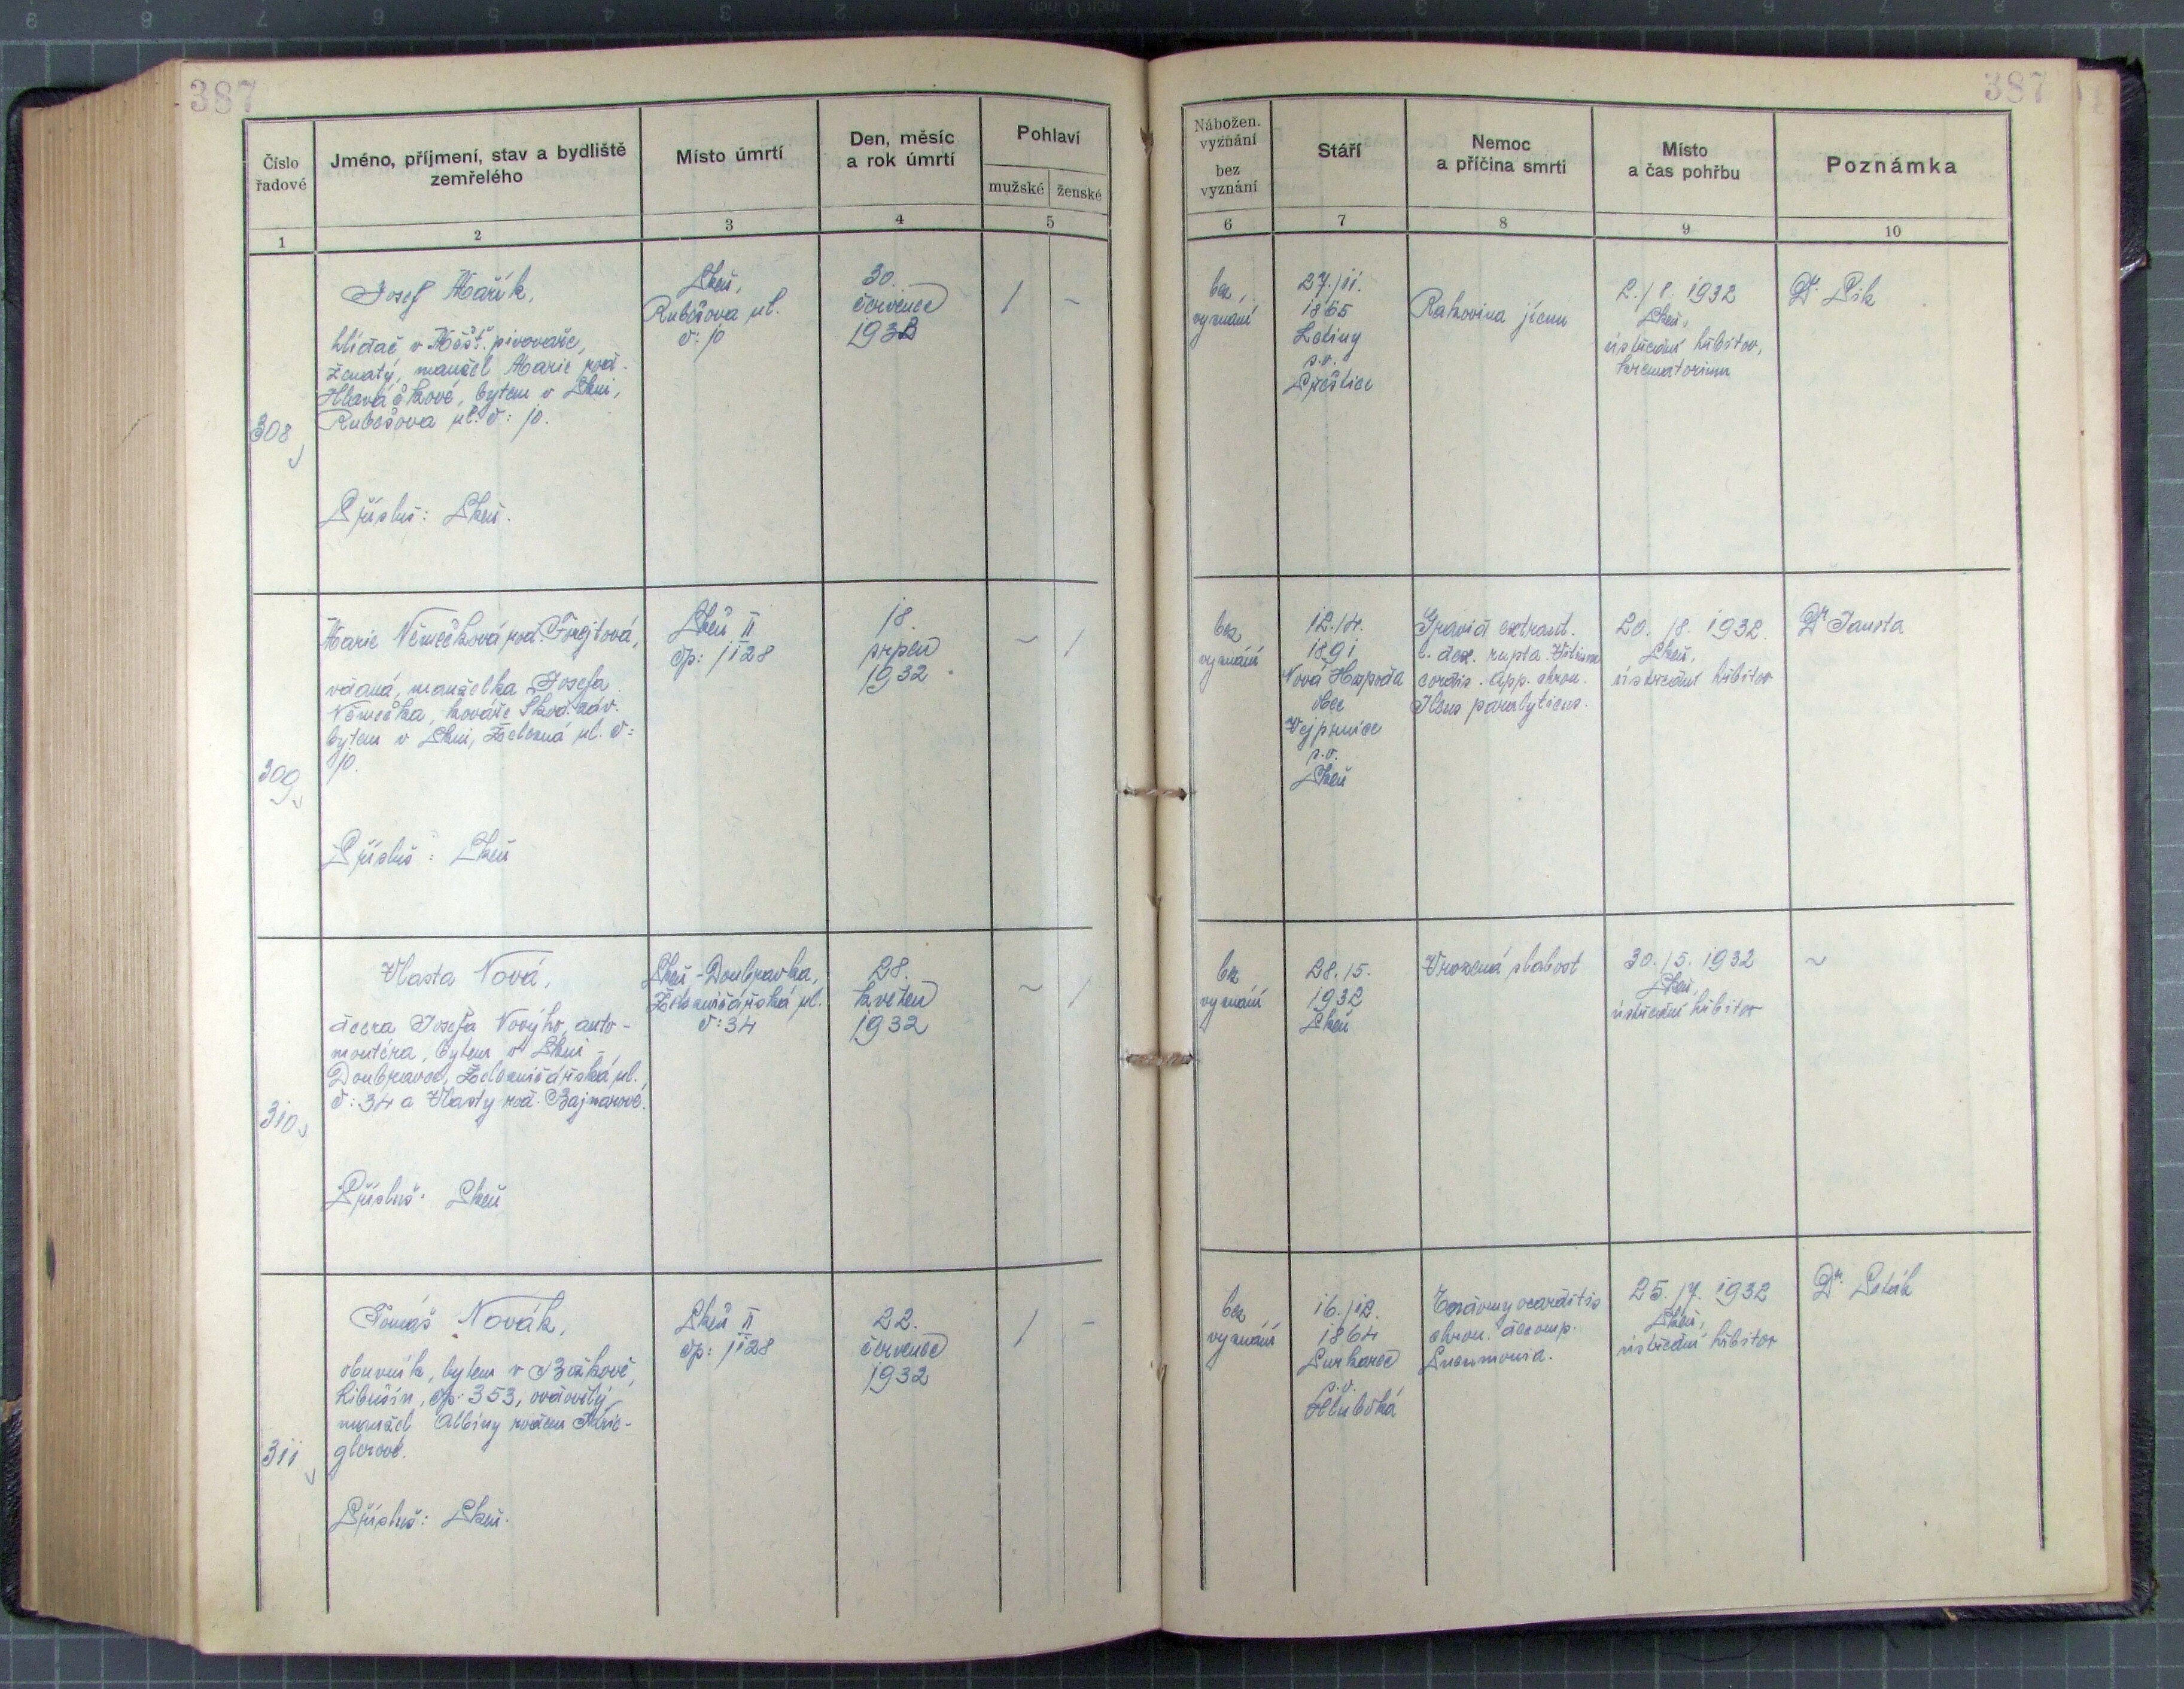 387
387
Číslo
řadové
Jméno, příjmení, stav a bydliště
zemřelého
Místo úmrtí
Den, měsíc
a rok úmrtí
Pohlaví
mužské
ženské
Nábožen.
vyznání
bez
vyznání
Stáří
Nemoc
a příčina smrti
Místo
a čas pohřbu
Poznámka
1
2
3
4
5
6
7
8
9
10
308
Josef Mařík,
hlídač v Měšť. pivovaře,
ženatý, manžel Marie roz.
Hlaváčkové, bytem v Plzni,
Rubešova ul. č: 10.
Přísluš: Plzeň.
Plzeň,
Rubešova ul.
č: 10
30.
červenec
1932
/
~
bez
vyznání
27./11.
1865
Letiny
p.o.
Přeštice
Rakovina jícnu
2./8. 1932
Plzeň,
ústřední hřbitov,
krematorium
Dr. Pik
309
Marie Němečková roz. Forejtová,
vdaná, manželka Josefa
Němečka, kováře Škod. záv.
bytem v Plzni, Železná ul. č:
10.
Přísluš: Plzeň
Plzeň II
čp: 1128
18.
srpen
1932.
~
/
bez
vyznání
12./4.
1891
Nová Hospoda
obec
Vejprnice
p.o.
Plzeň
Gravid extraut.
l. dex. rupta.
cordis. App. chron.
Ileus paralyticus.
20./8. 1932.
Plzeň,
ústřední hřbitov
Dr Jausta
310
Vlasta Nová,
dcera Josefa Nového, auto-
montéra, bytem v Plzni -
Doubravce, Železničářská ul.
č: 34 a Vlasty roz. Bajnarové.
Přísluš: Plzeň
Plzeň - Doubravka,
Železničářská ul.
č: 34
28.
květen
1932
~
/
bez
vyznání
28./5.
1932
Plzeň
Vrozená slabost
30./5. 1932
Plzeň,
ústřední hřbitov
~
311
Tomáš Novák,
obuvník, bytem v Božkově,
Libušín, čp: 353, ovdovělý,
manžel Albíny rozen
glerové.
Přísluš: Plzeň.
Plzeň II
čp: 1128
22.
červenec
1932
/
-
bez
vyznání
16./12.
1864
Purkarec
p.o.
Hluboká
chron. decomp.
Pneumonia.
25./7. 1932
Plzeň,
ústřední hřbitov
Dr. Polák